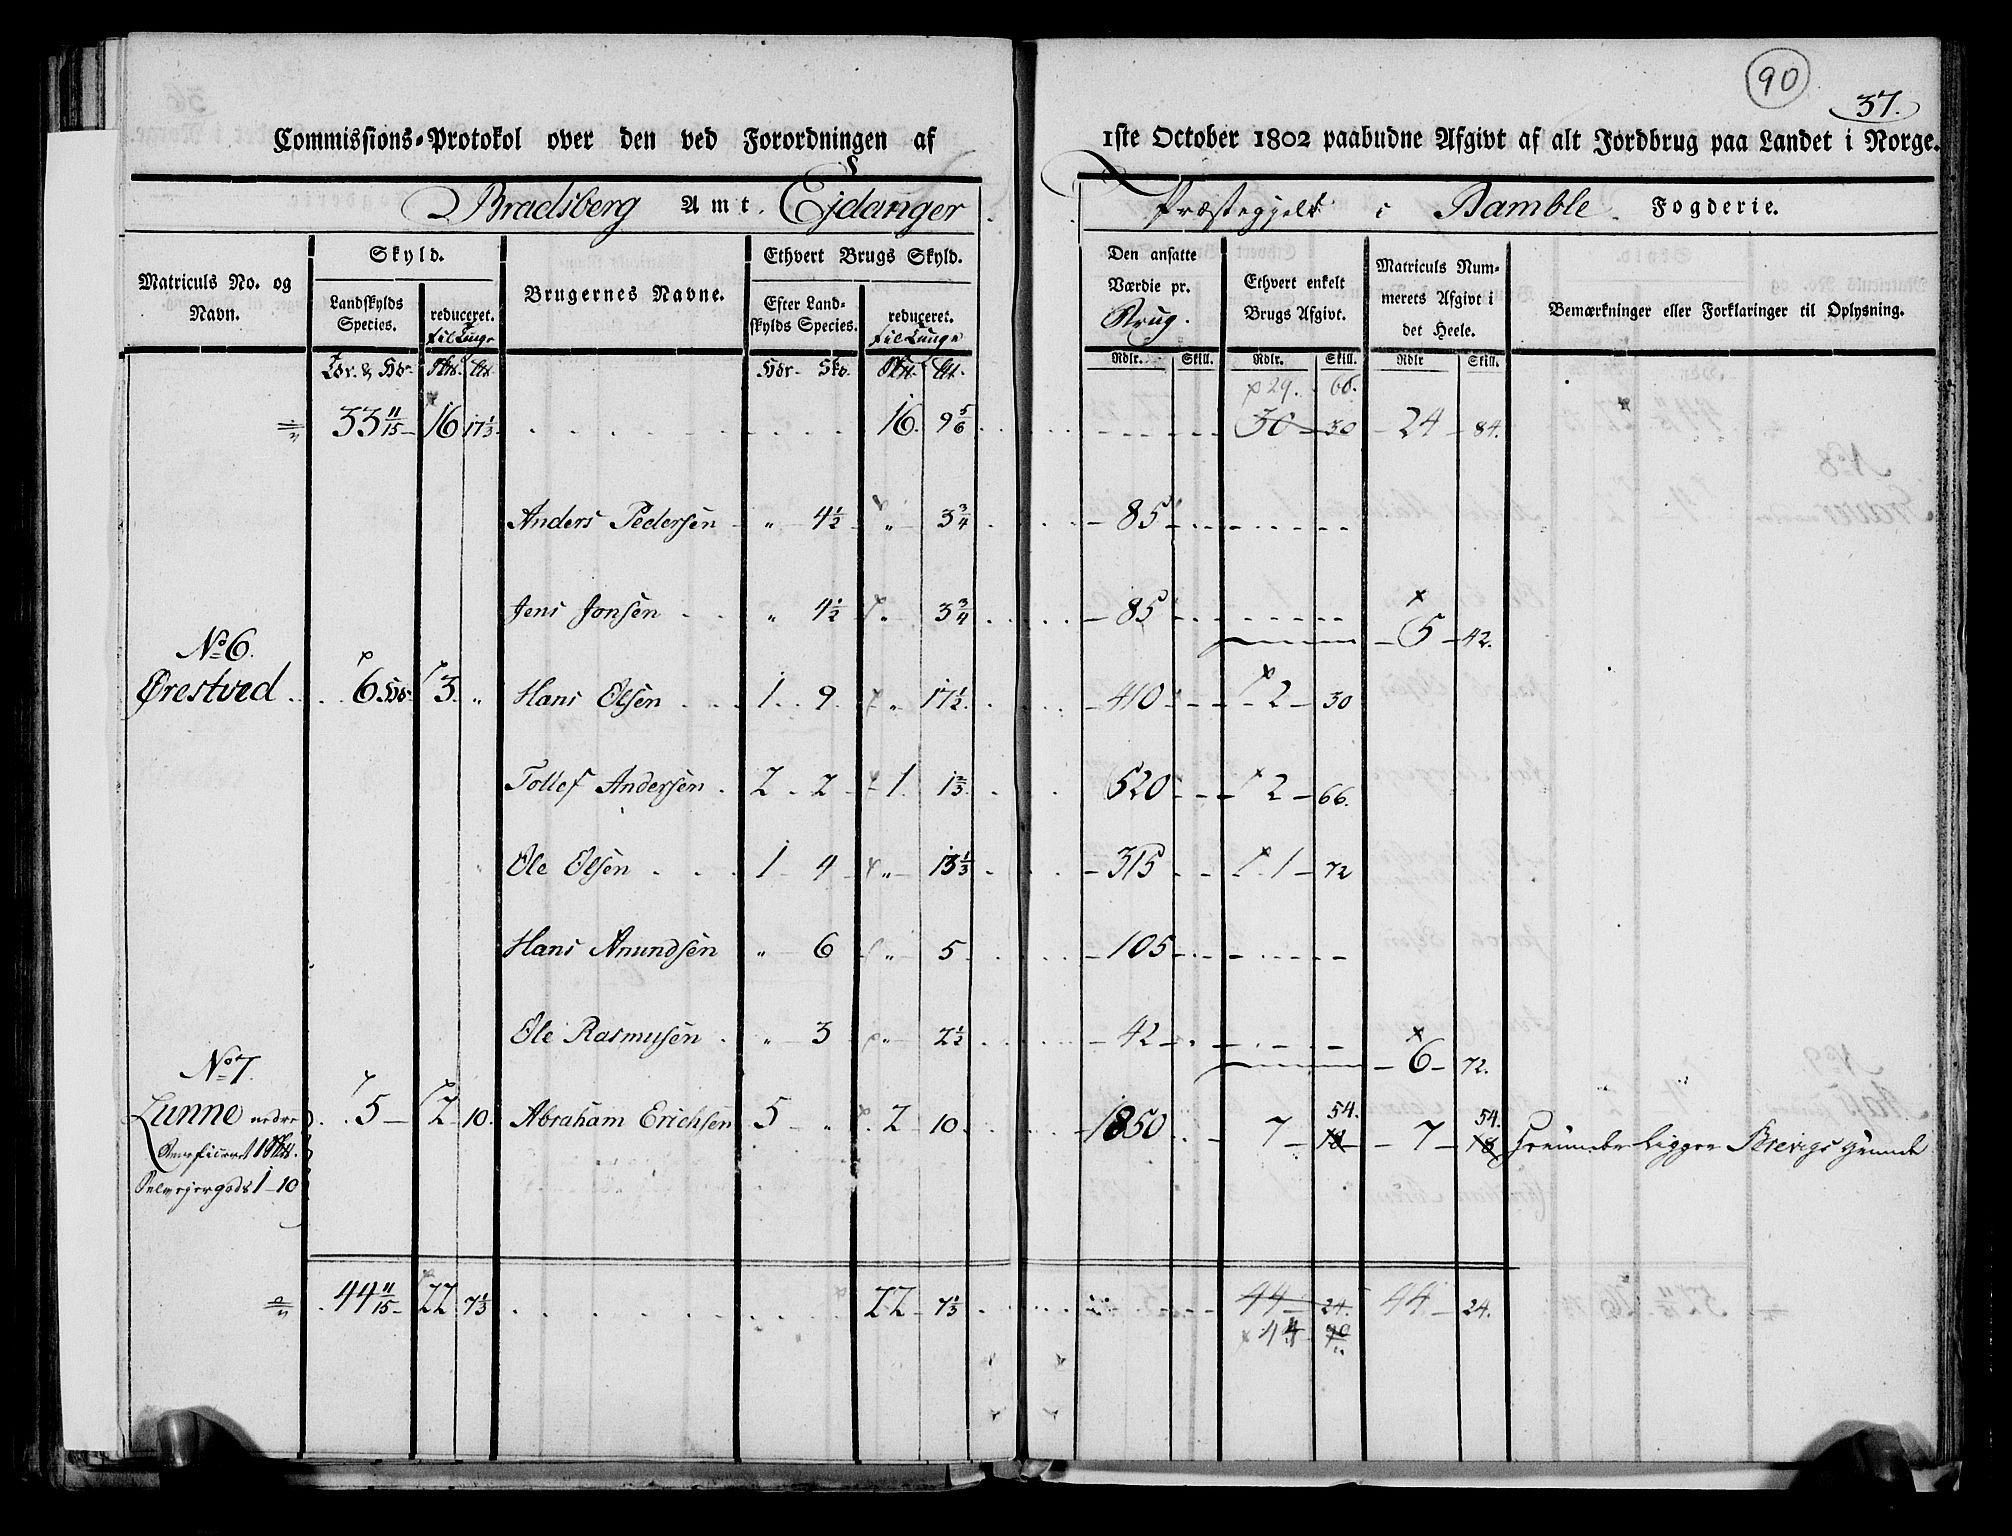 90
37.
Commissions-Protokol over den ved Forordningen af 1ste October 1802 paabudne Afgivt af alt Jordbrug paa Landet i Norge.
Bradsberg Amt. Ejdanger Præstegjeld i Bamble Fogderie.
Matriculs No. og Navn.
Skyld.
Landskylds Species.
reduceret. til Tunge
Brugernes Navne.
Ethvert Brugs Skyld.
Efter Landskylds Species.
reduceret. til Tunge
Den ansatte Værdie pr. Brug.
Ethvert enkelt Brugs Afgivt.
Matriculs Nummerets Afgivt i det Heele.
Bemærkninger eller Forklaringer til Oplysning.
Rdlr. Skill. Rdlr. Skill. Rdlr Skill.
29. 66.
33 11/15 16 17 1/3 16. 9 5/6 30 30 24 84.
Anders Pedersen " 4 1/2 " 3 3/4 85
Jens Jonsen " 4 1/2 " 3 3/4 85
5 42.
No 6.
Ørestved 6 3. " Hans Olsen 1 9 " 17 1/2. 410 2 30
Tollef Andersen 2 2 1. 1 2/3 520 2 66.
Ole Olsen 1 4 " 13 1/3 315 1 72
Hans Anundsen " 6 " 5 105
Ole Rasmusen " 3 " 2 1/2 42
6 72.
No 7.
54. 54.
Lunne nedre 5 2 10. Abraham Erichsen 5 " 2 10. 1850 7 18 7 18 Herunder Ligger Brevigs Grunde
Beneficeret 1
Selvejergods 1 10
44 11/15 22 7 1/3 22 7 1/3 44 24. 44 24.
44 90